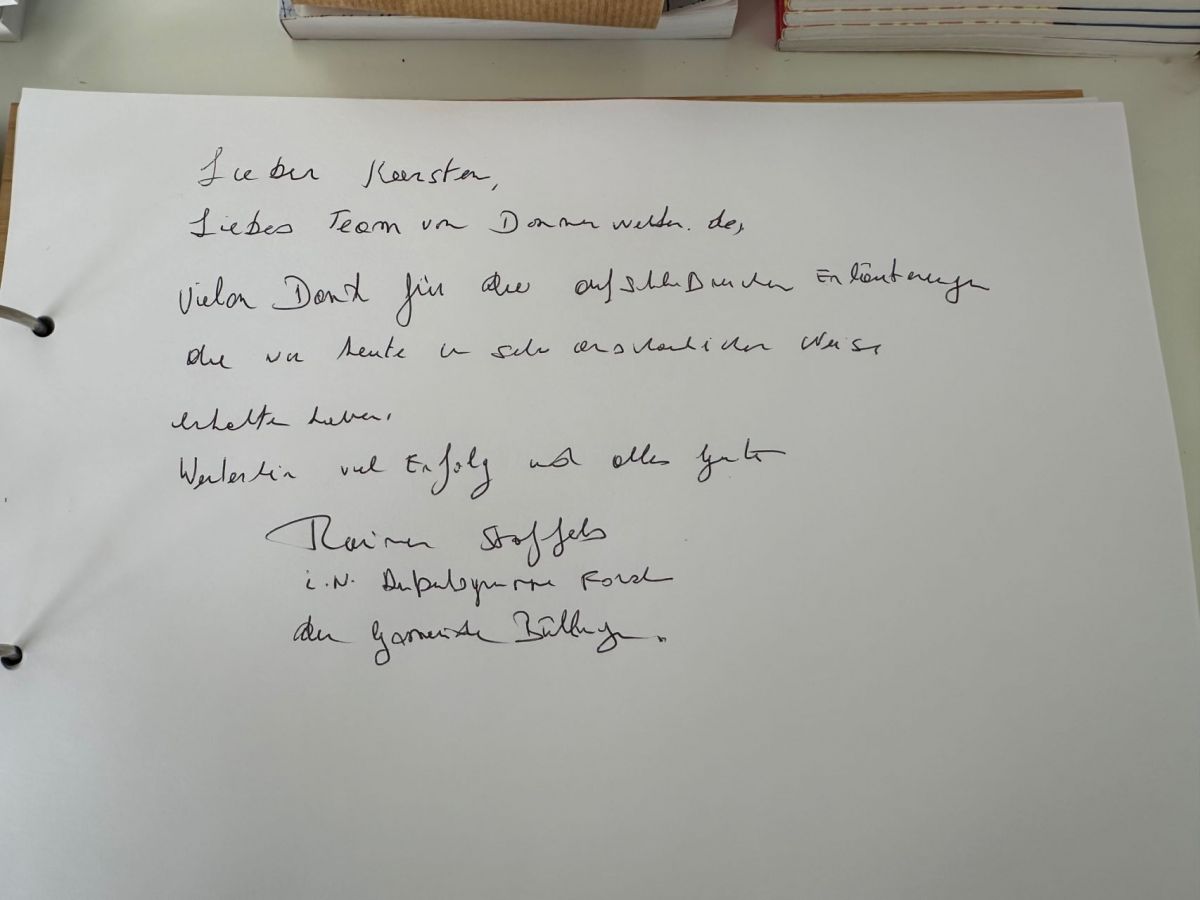 Lieber Karsten,
Liebes Team von Donnerwetter.de,
Vielen Dank für die aufschlußreichen Erläuterungen
die wir heute in sehr anschaulicher Weise
erhalten haben.
Weiterhin viel Erfolg und alles Gute
Rainer Stoffels
i.N. Arbeitsgruppe Forst
der Gemeinde Büllingen.